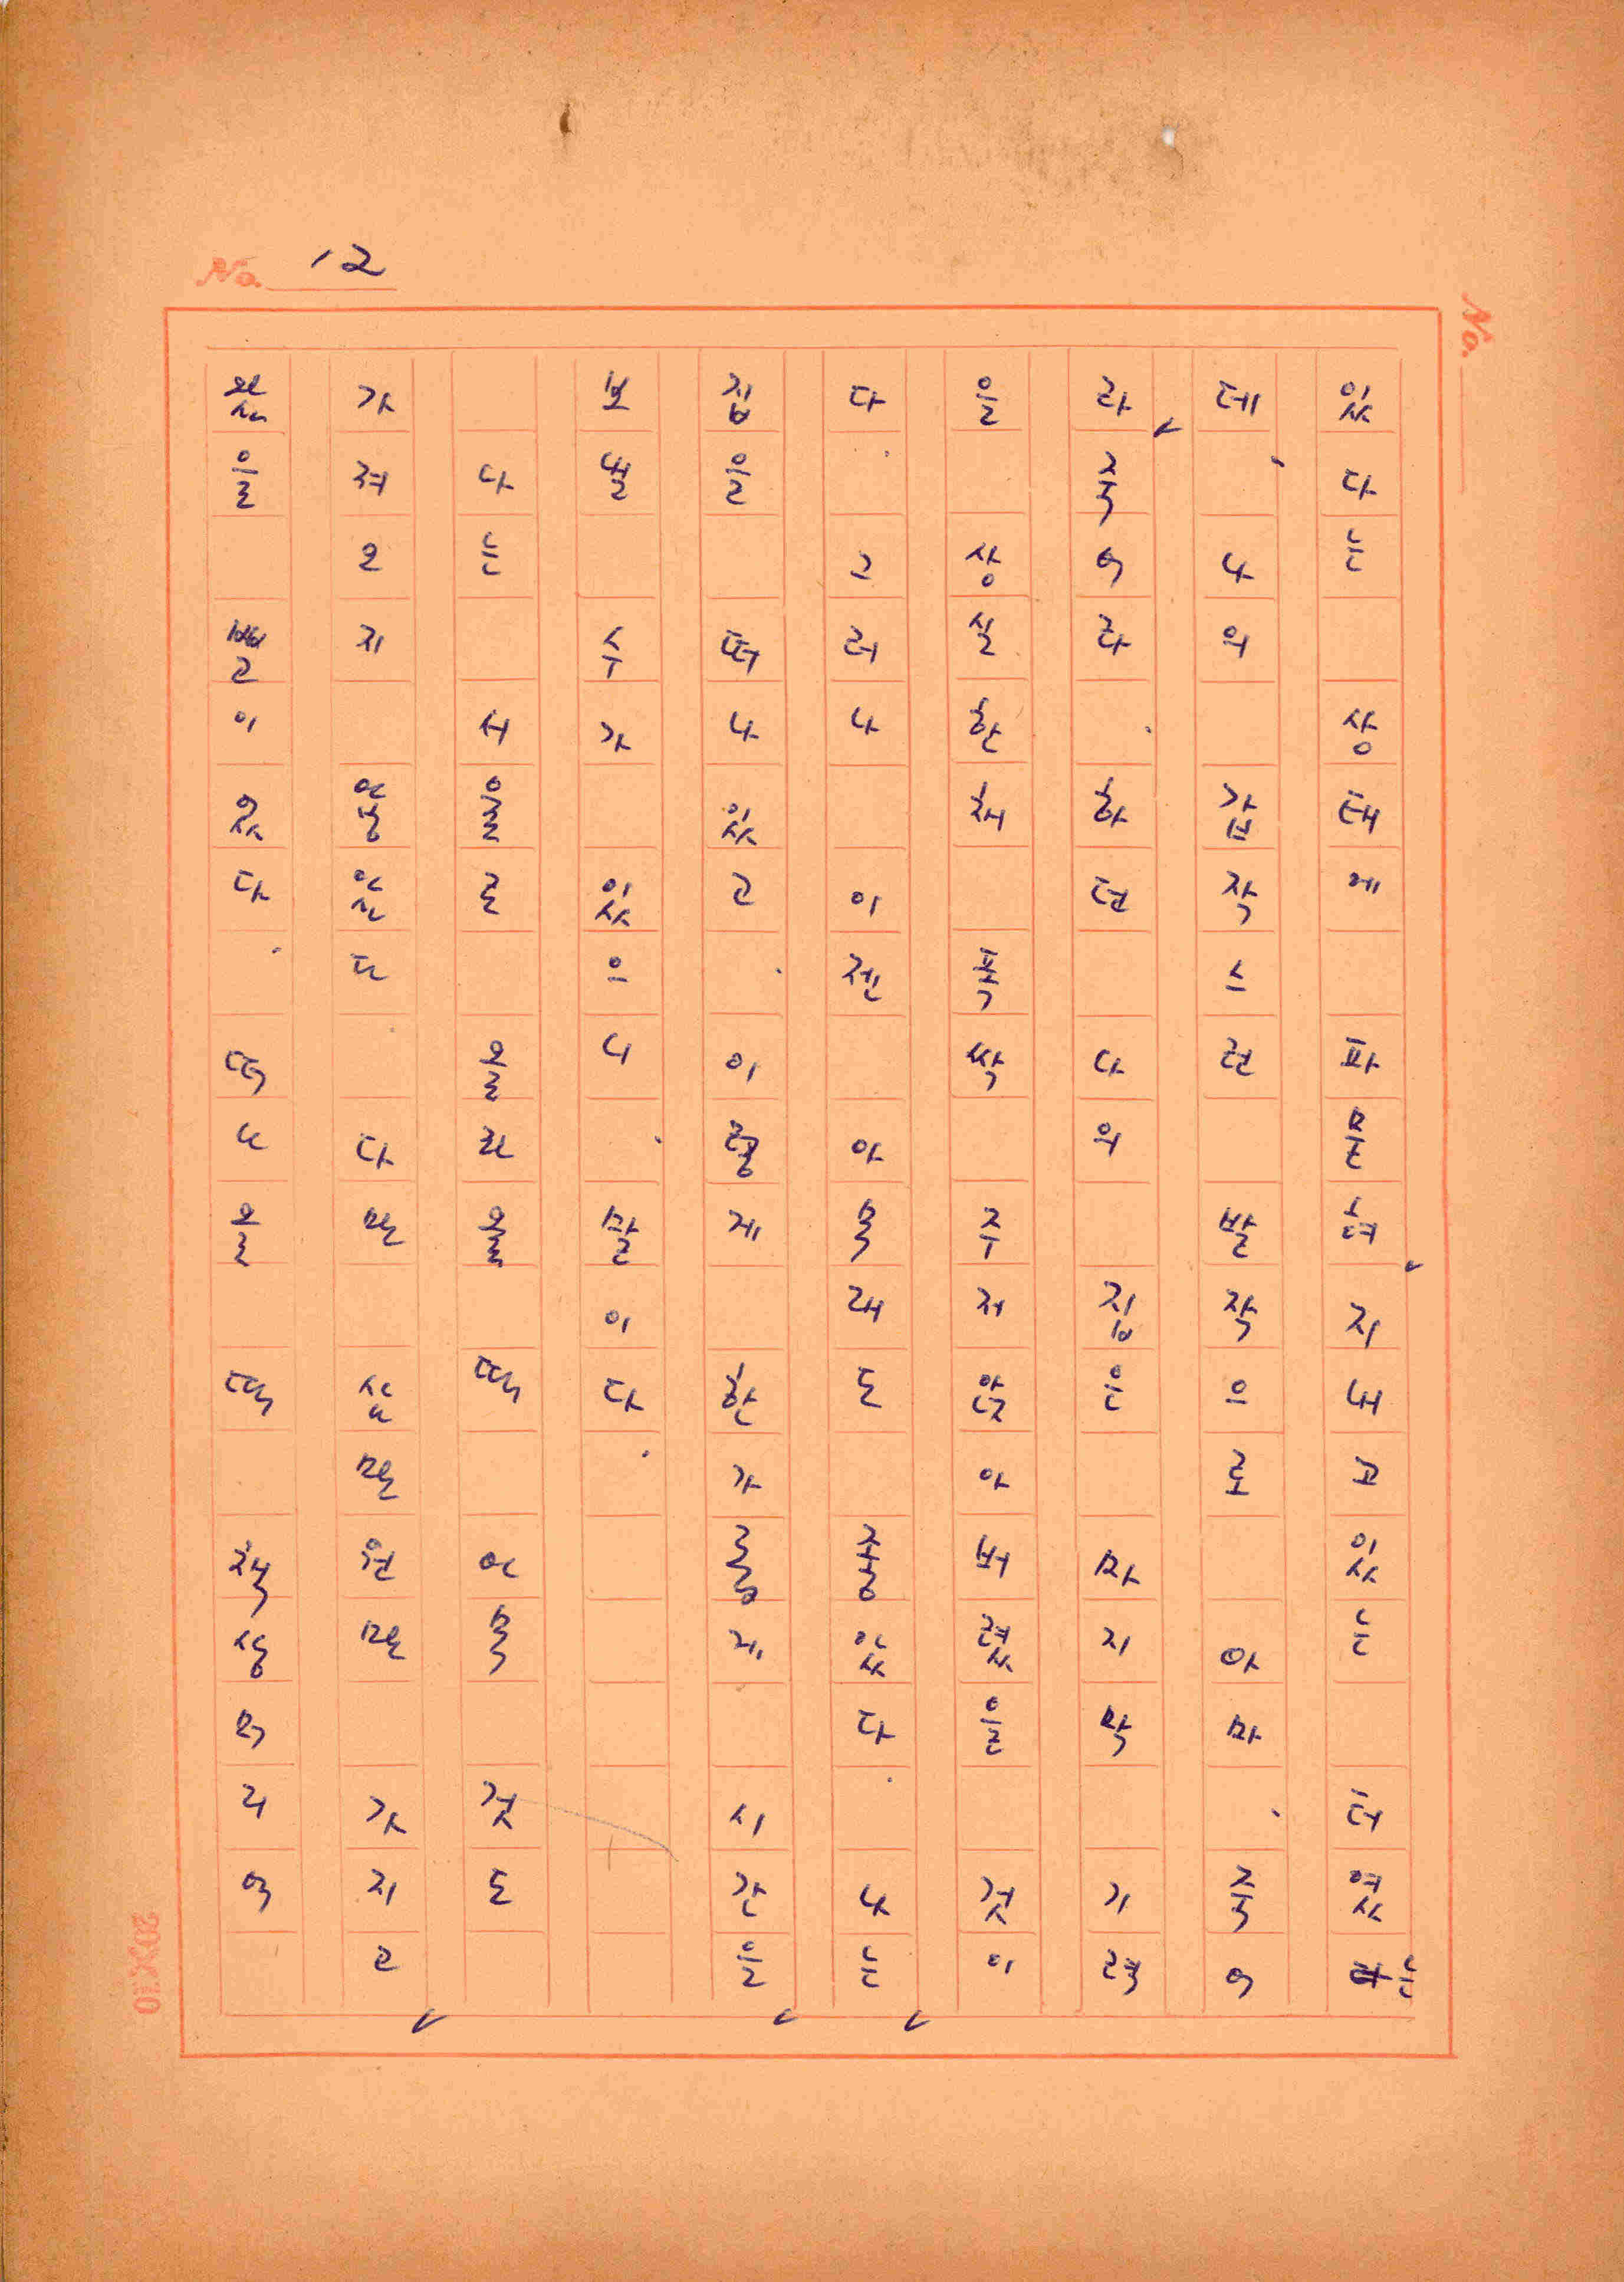 있다는 상태에 파묻혀 지내고 있는 터였는
데, 나의 갑작스런 발작으로 아마, 죽어
라 죽어라. 하던 나의 집은 마지막 기력
을 상실한 채 폭싹 주저앉아 버렸을 것이
다. 그러나 이젠 아무래도 좋았다. 나는
집을 떠나 있고. 이렇게 한가롭게 시간을
보낼 수가 있으니. 말이다.
나는 서울로 올라올 때 아무 것도
가져오지 않았다. 다만 삼만원만 가지고
왔을 뿐이었다. 떠나올 때 책상머리에
No. 12
No.
20×10